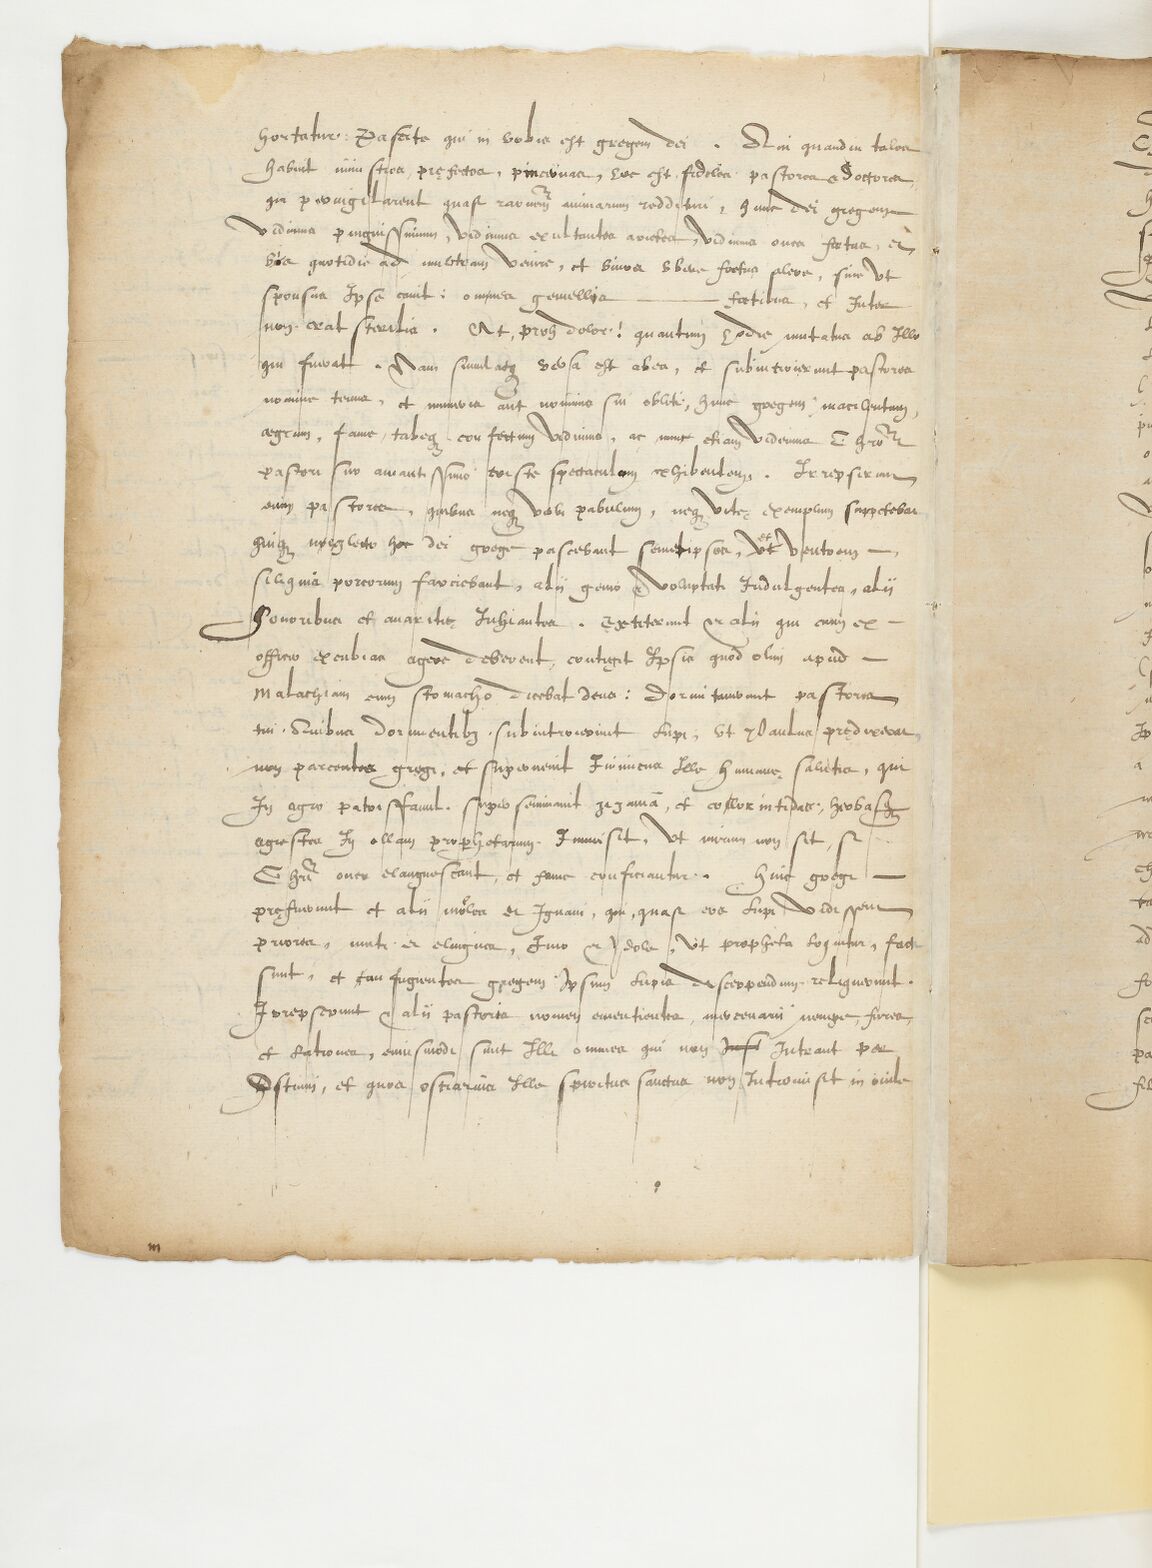 hortatur: Pascite qui in vobis est gregem dei . Qui quamdiu tales
habuit ministros, pręfectos, pincernas, hoc est fideles pastores & doctores,
qui pervigilarent quasi rationem animarum reddituri, hunc dei gregem
vidimus pinguissimum, vidimus exultantes arietes, vidimus oves fetas, et
quotidie ad mulctram venire, et binos ubere foetus alere, sicut
sponsus Ipse canit: omnes gemellis foetibus, et Inter
non erat sterilis . At, proh dolor! quantum hodie mutatus ab Illo
qui fuerat . Nam simulatq versa est alea, et subintroierunt pastores
nomine tenus, et muneris aut nominis sui obliti, hunc gregem macilentum,
aegrum, fame, tabeq confectum vidimus, ac nunc etiam videmus Christo
pastori suo amantissimo triste spectaculum exhibentem . Irrepserunt
enim pastores, quibus neq verbi pabulum, neq vitę exemplum suppetebat
hiiq neglecto hoc dei grege pascebant semetipsos, et ventrem
siliquis porcorum farciebant, alij genio & voluptati Indulgentes, alij
honoribus et avaritię Inhiantes . Extiterunt & alij qui cum ex
officio excubias agere deberent, contigit Ipsis quod olim apud
Malachiam cum stomacho dicebat deus: dormitaverunt pastores
tui . Quibus dormientibq subintroierunt lupi, ut Paulus prędixerat,
non parcentes gregi, et supervenit Inimicus Ille humanę salutis, qui
In agro patrisfamil. superseminavit zizania, et herbasq
agrestes In ollam prophetarum Immisit, ut mirum non sit, si
Christi oves elanguescant, et fame conficiantur . Huic gregi
pręfuerunt et alij molles et Ignavi, qui, quasi eos lupi vidissent
priores, muti & elingues, Imo & Idola, ut propheta loquitur, facti
sunt, et fugientes gregem Ipsum lupis discerpendum reliquerunt .
Irrepserunt & alij pastoris nomen ementientes, mercenarij nempe, fures,
et latrones, cuiusmodi sunt Illi omnes qui non Intrant per
Ostium, et quos ostiarius Ille spiritus sanctus non Intromisit in ovile